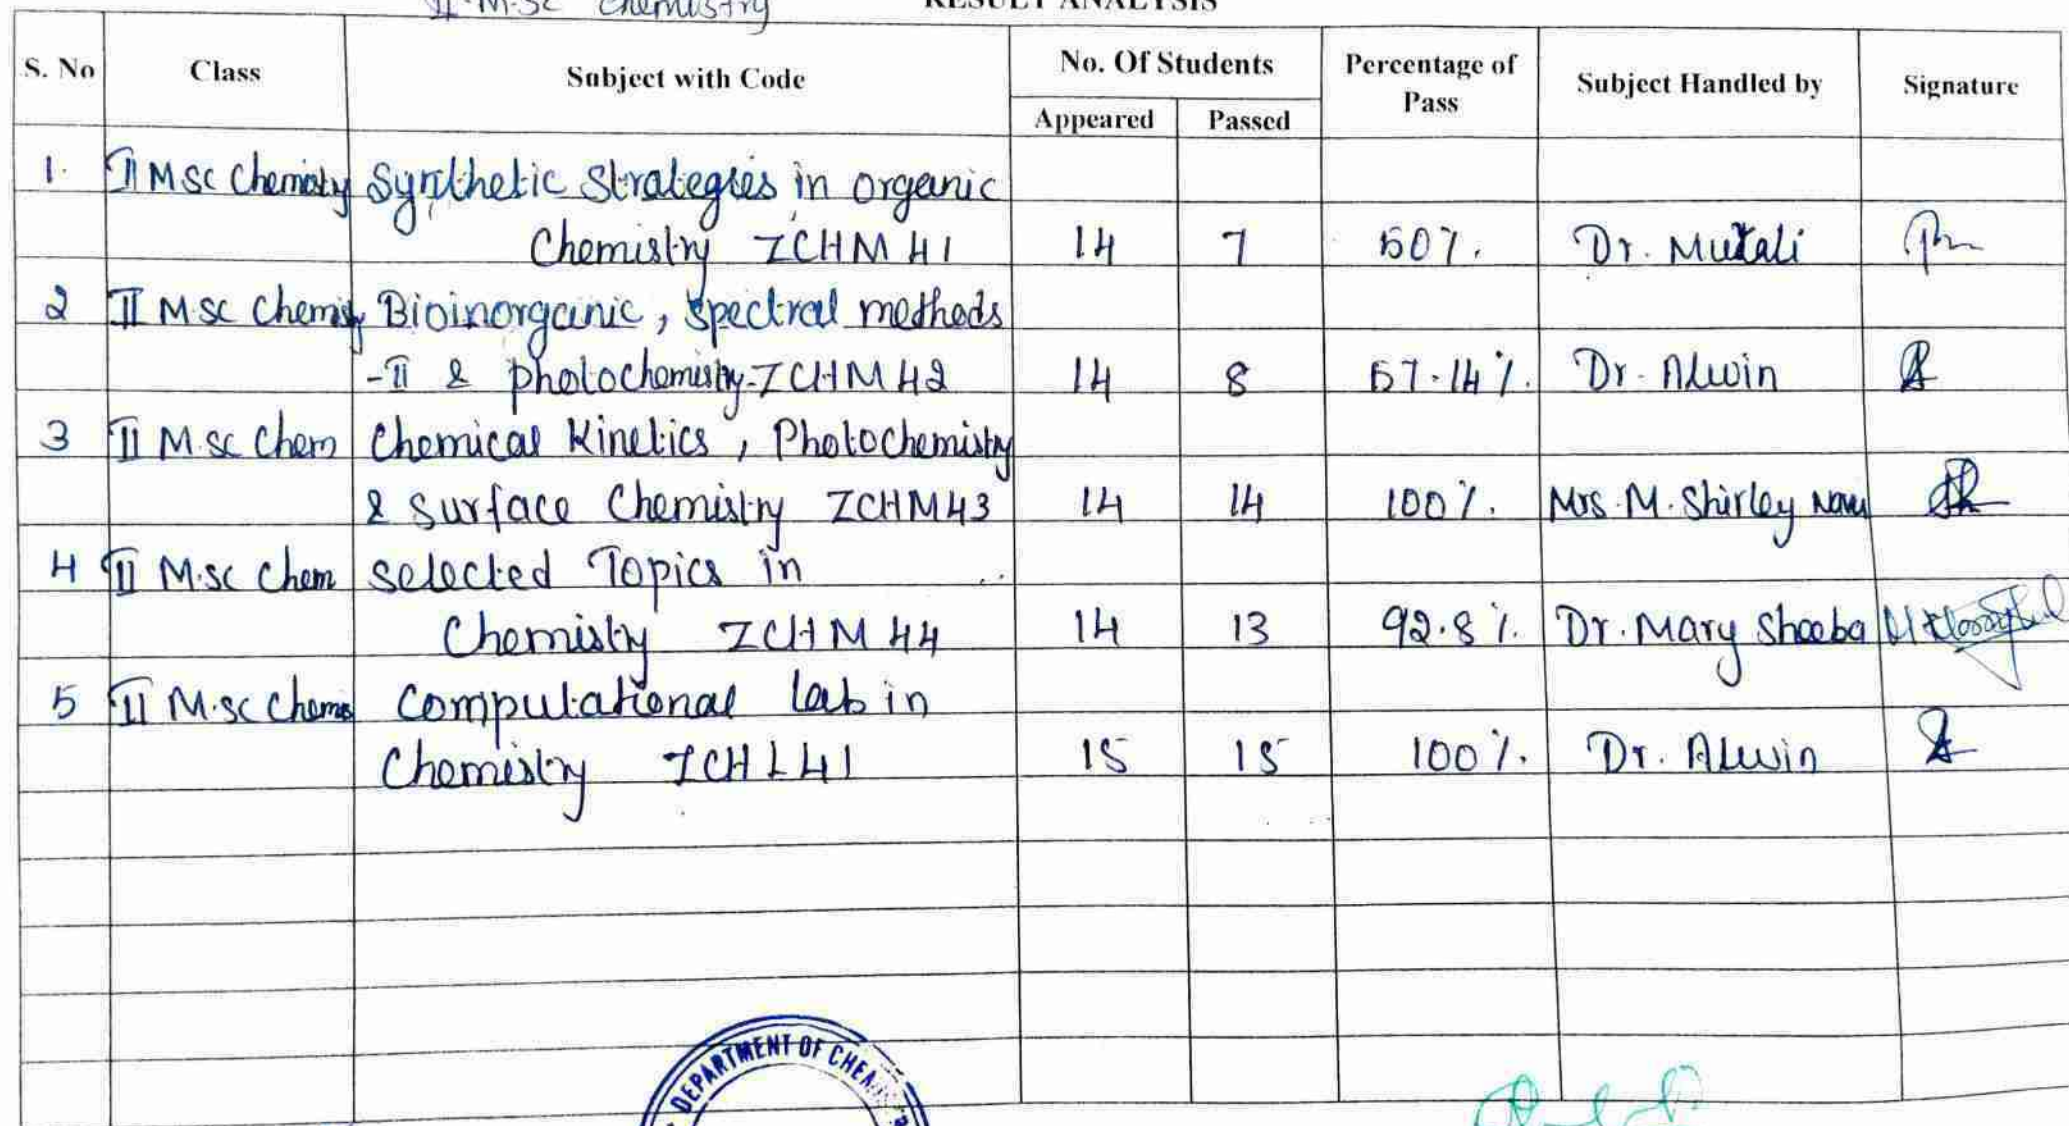 II M.Sc Chemistry RESULT ANALYSIS
S. No Class Subject with Code No. Of Students Percentage of Pass Subject Handled by Signature
Appeared Passed
1. II M SC Chemisty Synthetic Strategies in organic
Chemistry ZCHM 41 14 7 50%. Dr. Murali
2 II M SC Bioinorganic, spectral methods
-II & photochemistry-ZCHM42 14 8 57.14%. Dr. Alwin
3 II M.SC Chem Chemical Kinetics, Photochemistry
& Surface Chemistry ZCHM43 14 14 100%. Mrs. M. Shirley
4 II M.SC Chem selected Topics in
Chemistry ZCHM 44 14 13 92.8%. Dr. Mary Sheeba
5 II M.SC Computational Lab in
Chemistry ZCHL41 15 15 100%. Dr. Alwin
DEPARTMENT OF